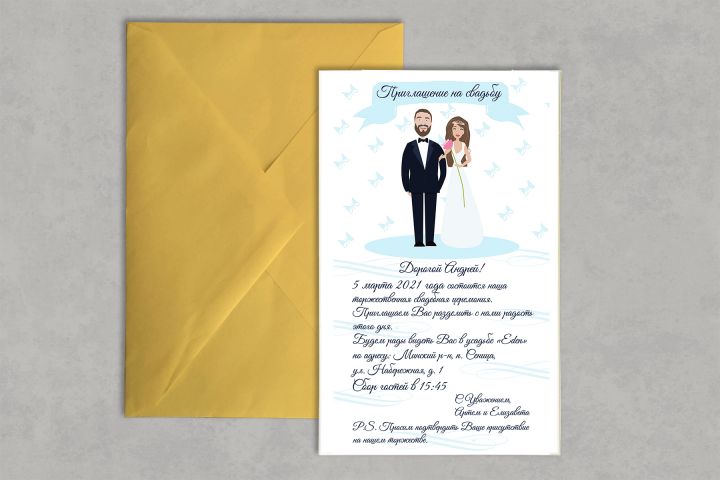 Приглашение на свадьбу
Дорогой Андрей!
5 марта 2021 года состоится наша
торжественная свадебная церемония.
Приглашаем Вас разделить с нами радость
этого дня.
Будем рады видеть Вас в усадьбе «Eden»
по адресу: Минский р-н, п. Сеница,
ул. Набережная, д. 1
Сбор гостей в 15:45
С Уважением,
Артем и Елизавета
P.S. Просим подтвердить Ваше присутствие
на нашем торжестве.